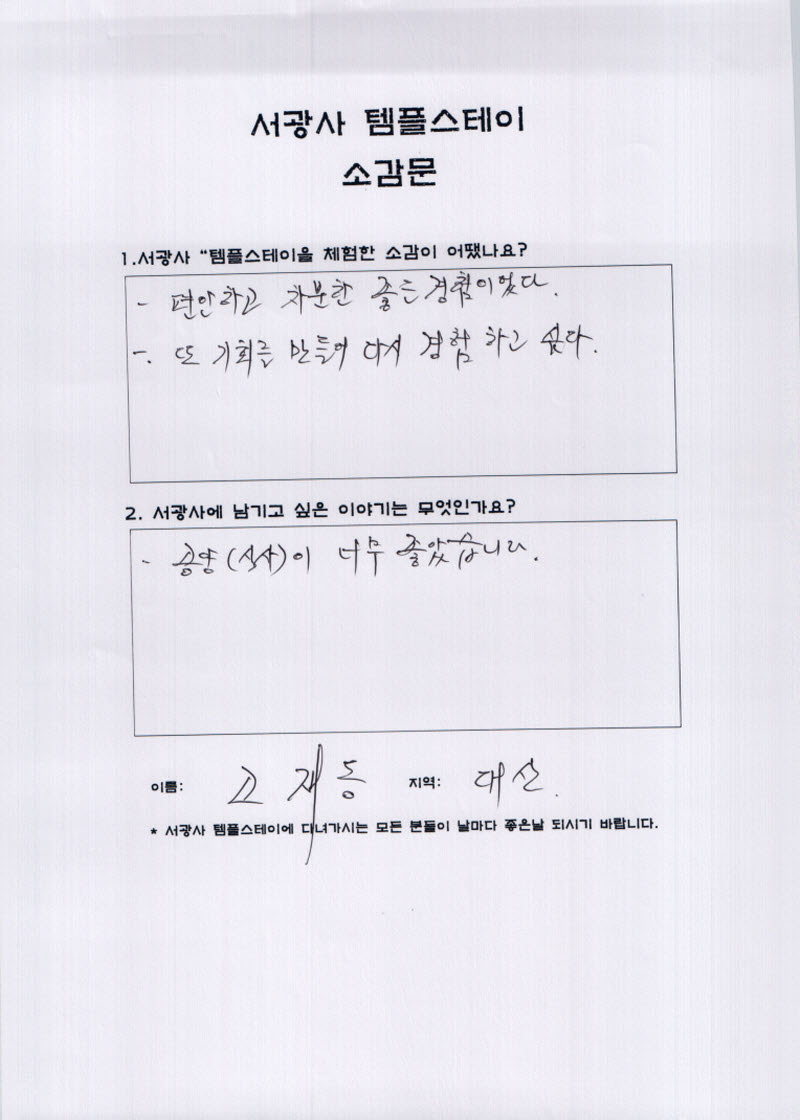 서광사 템플스테이
소감문
1.서광사 “템플스테이을 체험한 소감이 어땠나요?
- 편안하고 차분한 좋은 경험이었다.
-. 또 기회를 만들어 다시 경험 하고 싶다.
2. 서광사에 남기고 싶은 이야기는 무엇인가요?
- 공양(식사)이 너무 좋았습니다.
이름: 고재동 지역: 대산.
* 서광사 템플스테이에 다녀가시는 모든 분들이 날마다 좋은날 되시기 바랍니다.